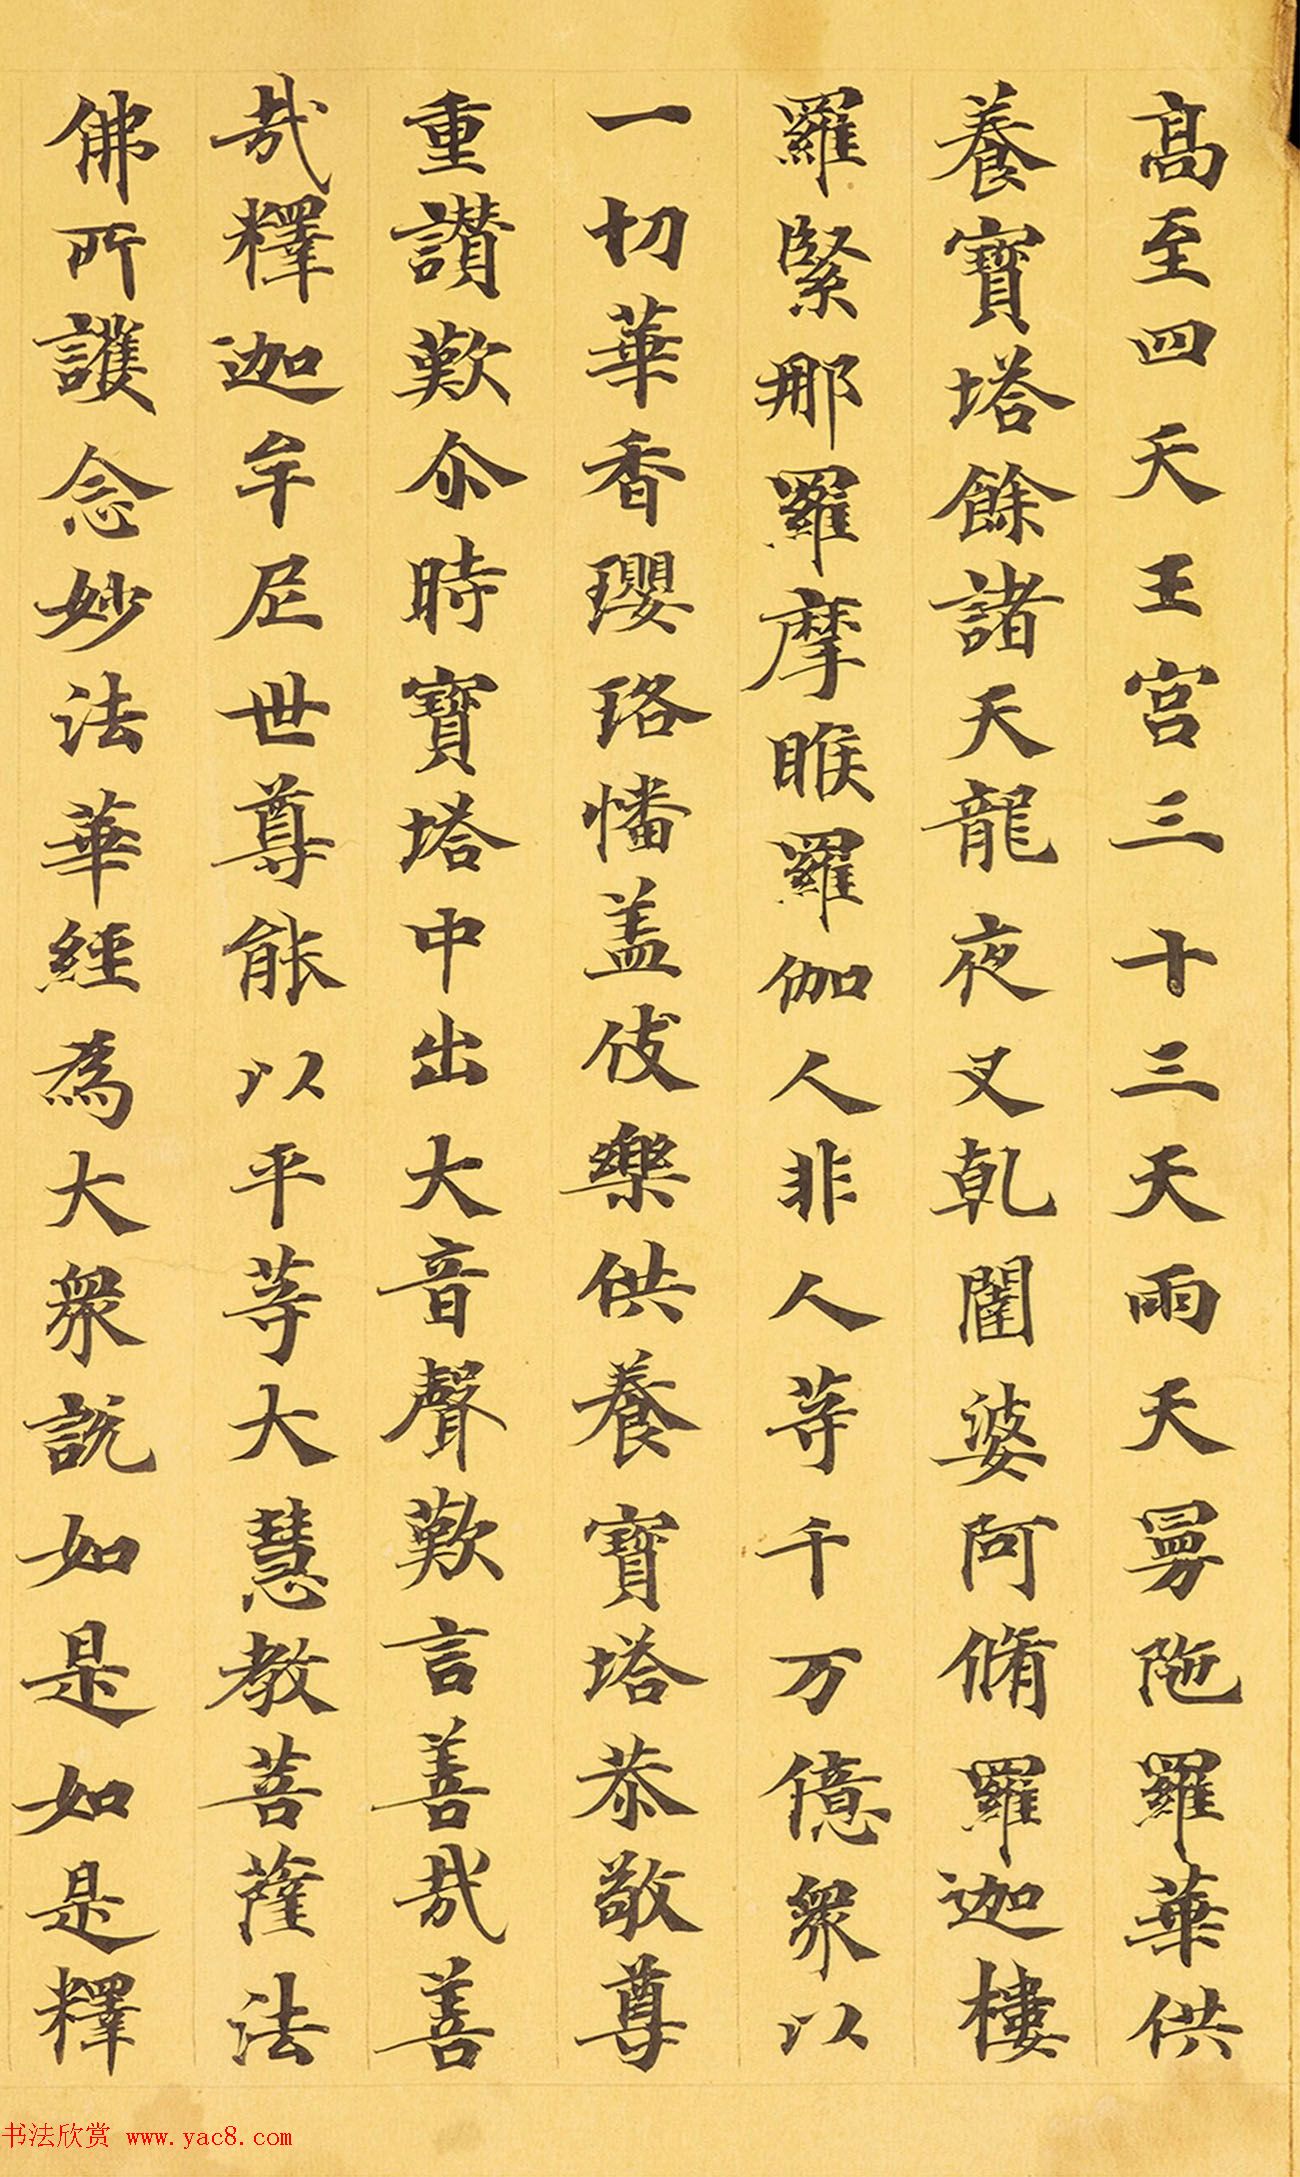 高至四天王宮三十三天天雨天曼陁羅華供
養寶塔餘諸天龍夜叉乹闥婆阿脩羅迦樓
羅緊那羅摩睺羅伽人非人等千万億衆以
一切華香瓔珞幡盖伎樂供養寶塔恭敬尊
重讃歎尒時寶塔中出大音聲歎言善哉善
哉釋迦牟尼世尊能以平等大慧教菩薩法
佛所護念妙法華經爲大衆説如是如是釋
书法欣赏 www.yac8.com